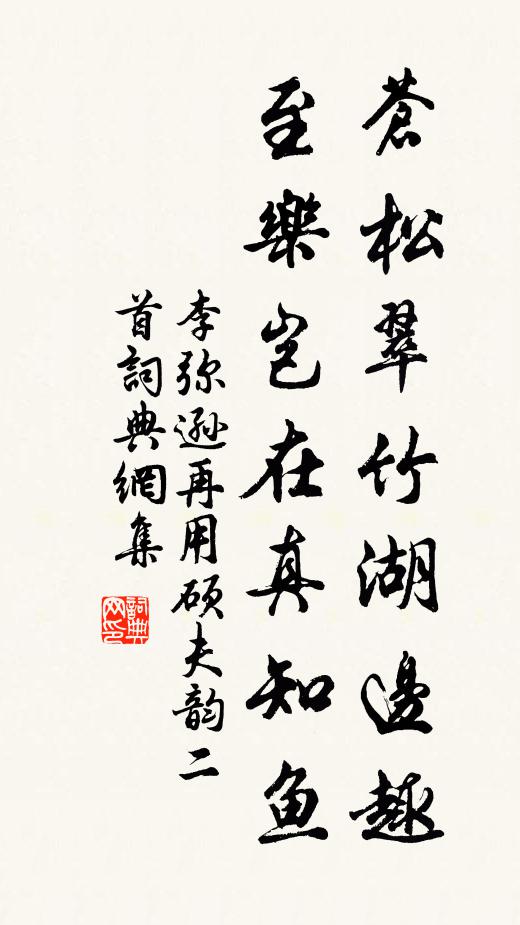 蒼松翠竹湖邊趣
至樂岂在真知鱼
李弥遜再用碩夫韵二
首詞典網集
詞典
网印